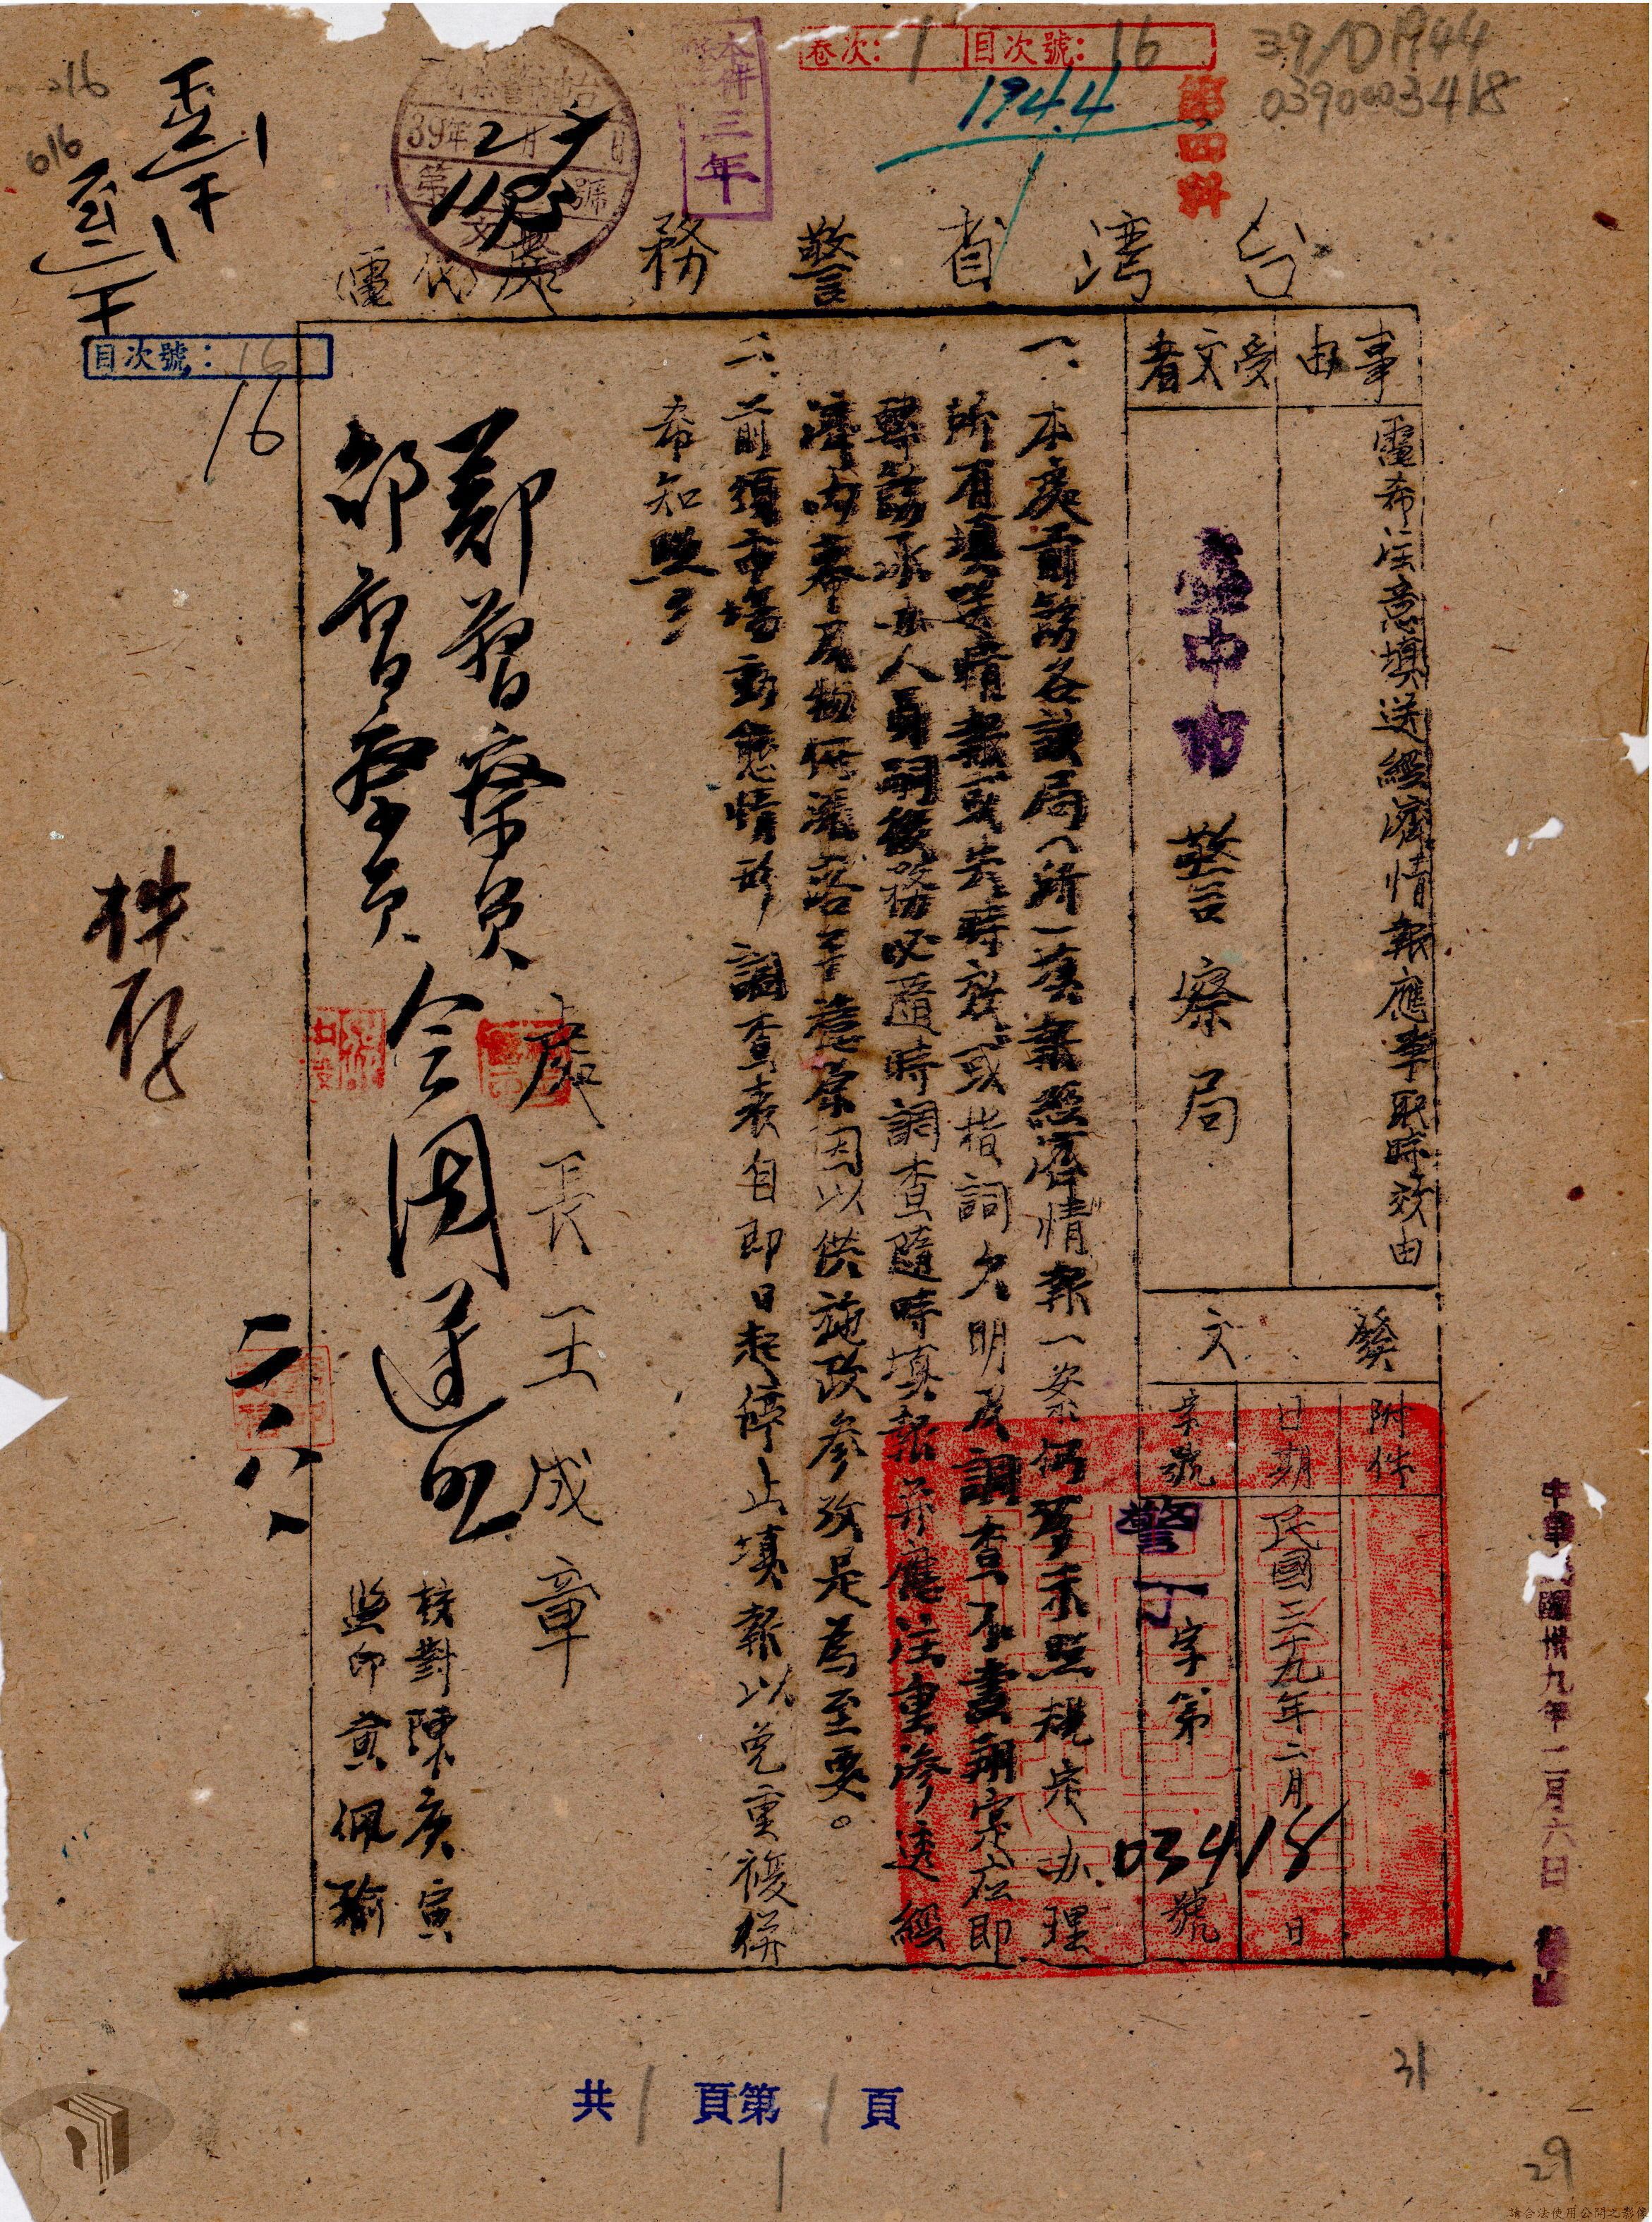 卷次：1 目次號：16
39/D1944
0390003418
1944
第四科
本件
三年
39年2月7日
第1195號
216
616
台灣省警務處代電
目次號：16
16
事由
電希注意填送經濟情報應爭取時效由
受文者
臺中市警察局
發文
附件
日期
民國三十九年二月 日
字號
警丁字第03418號
一、本處前飭各該局(所)蒐集經濟情報一案仍多未照規定辦理
所有填送情報或失時效或指詞欠明及調查不盡翔實應即
轉飭承辦人員嗣後務必隨時調查隨時填報并應注重滲透經
濟內幕及物價漲落等惹原因以供施政參攷是為至要。
二、前頒市場動態情形調查表自即日起停止填報以免重複併
希知照
處長王成章
鄭督察員
邰督察員
會閱遵照
核對陳庚寅
監印黃佩瑜
二八
擬存
中華民國卅九年二月六日
共1頁第1頁
31
29
請合法使用公開之影像